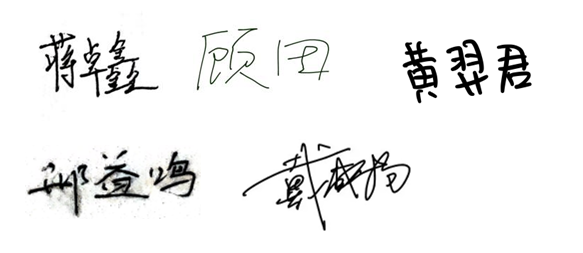 蒋卓鑫 顾田 黄羿君
邢益鸣 戴成扬